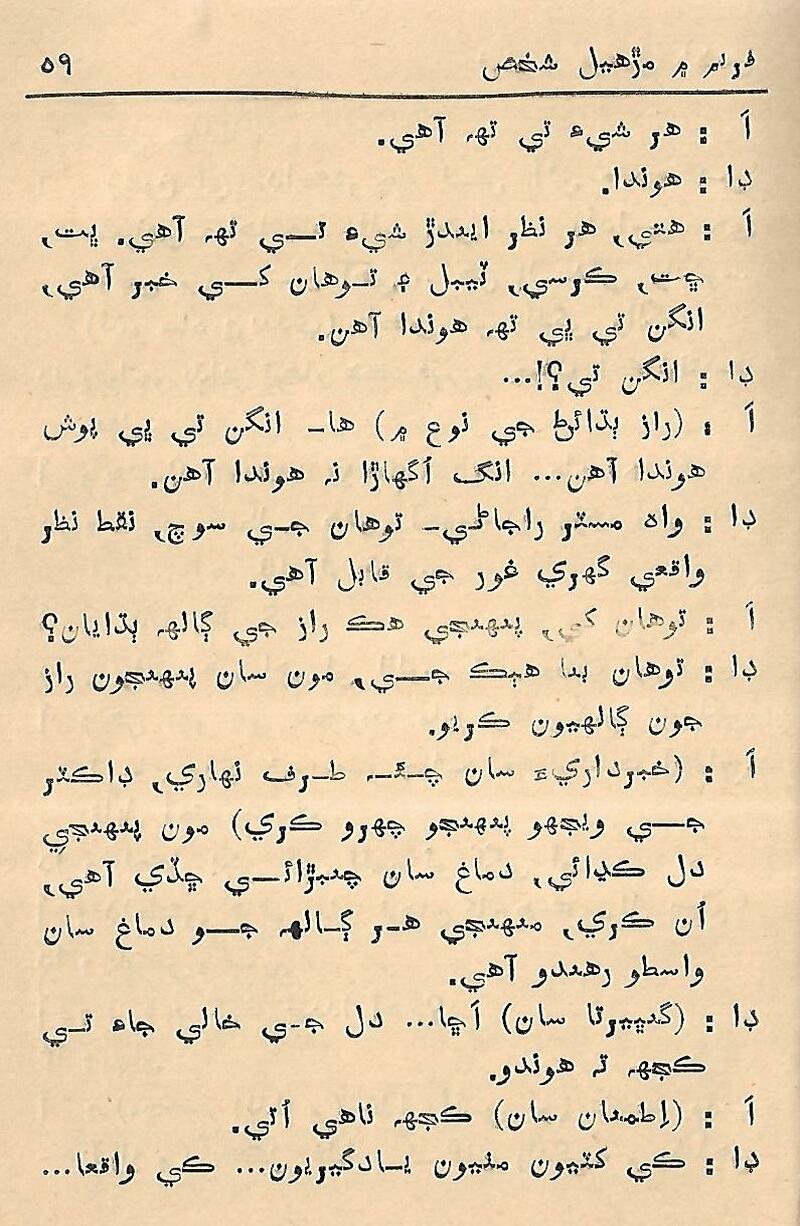 فريم ۾ مڙهيل شخص ۵۹
اَ : هر شيءِ تي تهہ آهي.
ڊا : هوندا.
اَ : هتي، هر نظر ايندڙ شيءِ تــي تهہ آهي. ڀت،
ڇت، ڪرسي، ٽيبل ۽ تـوهان کــي خبر آهي،
انگن تي پي تهہ هوندا آهن.
ڊا : انگن تي؟!...
اَ : (راز ٻڌائڻ جي نوع ۾) ها- انگن تي پي پوش
هوندا آهن... انگ اُگهاڙا نہ هوندا آهن.
ڊا : واه مسٽر راڄاڻي- توهان جـي سوچ، نقط نظر
واقعي گهري غور جي قابل آهي.
اَ : توهان کي، پنهنجي هڪ راز جي ڳالهہ ٻڌايان؟
ڊا : توهان بنا هٻڪ جــي، مون سان پنهنجون راز
جون ڳالهيون ڪريو.
اَ : (خبرداريءَ سان چـئـ طـرف نهاري، ڊاڪٽر
جــي ويجهو پنهنجو چهرو ڪري) مون پنهنجي
دل ڪڍائي، دماغ سان چنبڙائــي ڇڏي آهي،
اُن ڪري، منهنجي هـر ڳـالهہ جــو دماغ سان
واسطو رهندو آهي.
ڊا : (گنڀيرتا سان) اَڇا... دل جـي خالي جاءِ تـي
ڪجهہ تہ هوندو.
اَ : (اِطمنان سان) ڪجهہ ناهي اُتي.
ڊا : ڪي کٽيون مٺيون يـادگيريون... ڪي واقعا...